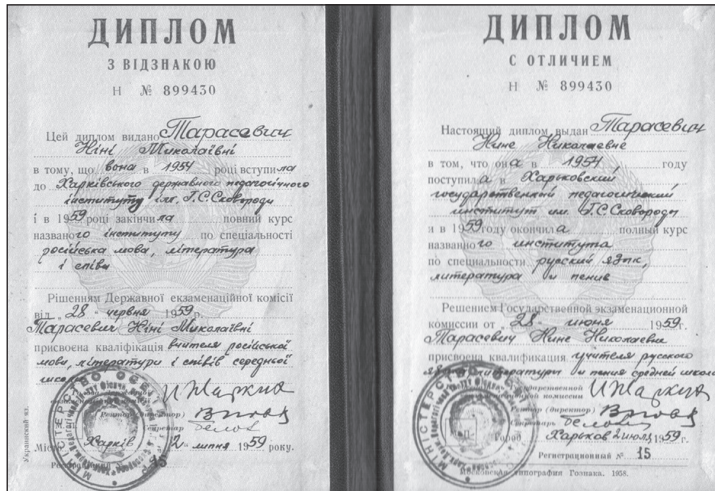 ДИПЛОМ
З ВІДЗНАКОЮ
Н № 899430
Цей диплом видано Тарасевич
Ніні Миколаївні
в тому, що вона в 1954 році вступила
до Харківського державного педагогічного
інституту ім. Г.С.Сковороди
і в 1959 році закінчила повний курс
названого інституту по спеціальності
російська мова, література
і співи
Рішенням Державної екзаменаційної комісії
від „28" червня 1959 р.
Тарасевич Ніні Миколаївні
присвоєна кваліфікація вчителя російської
мови, літератури і співів середньої
Харків 2 липня 1959 року.
15
ДИПЛОМ
С ОТЛИЧИЕМ
Н № 899430
Настоящий диплом выдан Тарасевич
Нине Николаевне
в том, что она в 1954 году
поступила в Харьковский
государственный педагогический
институт им. Г.С.Сковороды
и в 1959 году окончила полный курс
названного института
по специальности русский язык,
литература и пение
Решением Государственной экзаменационной
комиссии от „28" июня 1959 г.
Тарасевич Нине Николаевне
присвоена квалификация учителя русского
языка, литературы и пения средней школы
Государственной
экзаменационной комиссии
Ректор (директор)
Секретарь
Город Харьков 2 июля 1959 г.
Регистрационный № 15
Московская типография Гознака. 1958.